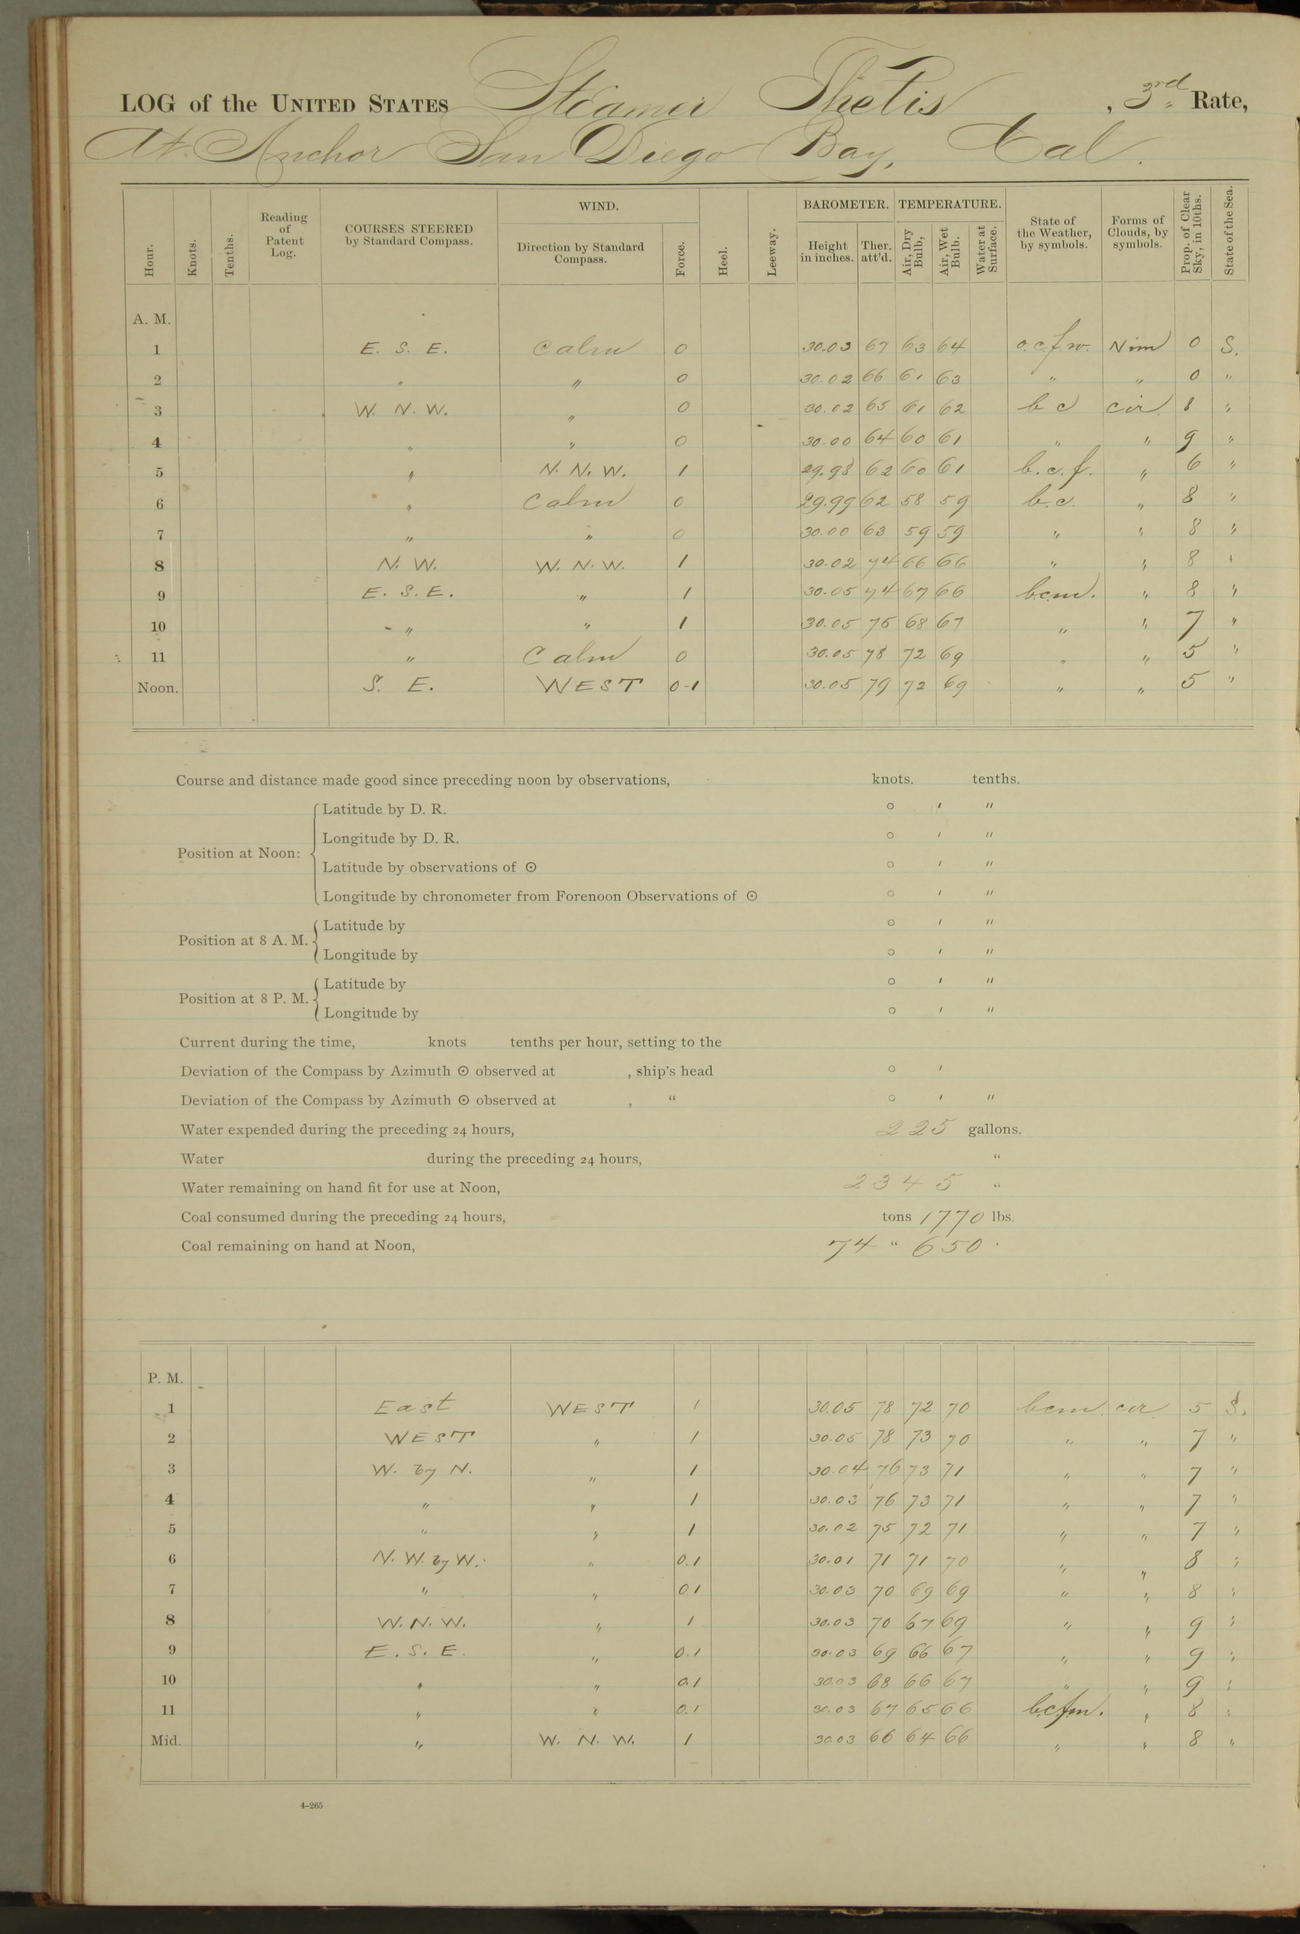 LOG of the UNITED STATES Steamer Thetis, 3rd Rate,
At Anchor San Diego Bay, Cal.
Hour. Knots. Tenths. Reading of Patent Log. COURSES STEERED by Standard Compass. WIND. Direction by Standard Compass. Force. Heel. Leeway. BAROMETER. Height in inches. Ther. att'd. TEMPERATURE. Air, Dry Bulb, Air, Wet Bulb. Water at Surface. State of the Weather, by symbols. Forms of Clouds, by symbols. Prop. of Clear Sky, in 10ths. State of the Sea.
A. M.
1 E. S. E. Calm 0 30.03 67 63 64 o.c.f.w. Nim 0 S.
2 " " 0 30.02 66 61 63 " " 0 "
3 W. N. W. " 0 30.02 65 61 62 b c cir 8 "
4 " " 0 30.00 64 60 61 " " 9 "
5 " N. N. W. 1 29.98 62 60 61 b.c.f. " 6 "
6 " Calm 0 29.99 62 58 59 b.c. " 8 "
7 " " 0 30.00 63 59 59 " " 8 "
8 N. W. W. N. W. 1 30.02 74 66 66 " " 8 "
9 E. S. E. " 1 30.05 74 67 66 bcm. " 8 "
10 " " 1 30.05 75 68 67 " " 7 "
11 " Calm 0 30.05 78 72 69 " " 5 "
Noon. S. E. WEST 0-1 30.05 79 72 69 " " 5 "
Course and distance made good since preceding noon by observations, knots. tenths.
Position at Noon: Latitude by D. R. ° ′ ″
Longitude by D. R. ° ′ ″
Latitude by observations of ⊙ ° ′ ″
Longitude by chronometer from Forenoon Observations of ⊙ ° ′ ″
Position at 8 A. M. Latitude by ° ′ ″
Longitude by ° ′ ″
Position at 8 P. M. Latitude by ° ′ ″
Longitude by ° ′ ″
Current during the time, knots tenths per hour, setting to the
Deviation of the Compass by Azimuth ⊙ observed at , ship's head ° ′
Deviation of the Compass by Azimuth ⊙ observed at , " ° ′ ″
Water expended during the preceding 24 hours, 225 gallons.
Water during the preceding 24 hours, "
Water remaining on hand fit for use at Noon, 2345 "
Coal consumed during the preceding 24 hours, tons 1770 lbs.
Coal remaining on hand at Noon, 74 " 650 "
P. M.
1 East WEST 1 30.05 78 72 70 bcm. cir 5 S.
2 WEST " 1 30.05 78 73 70 " " 7 "
3 W. by N. " 1 30.04 76 73 71 " " 7 "
4 " " 1 30.03 76 73 71 " " 7 "
5 " " 1 30.02 75 72 71 " " 7 "
6 N. W. by W. " 0.1 30.01 71 71 70 " " 8 "
7 " " 0.1 30.03 70 69 69 " " 8 "
8 W. N. W. " 1 30.03 70 67 69 " " 9 "
9 E. S. E. " 0.1 30.03 69 66 67 " " 9 "
10 " " 0.1 30.03 68 66 67 " " 9 "
11 " " 0.1 30.03 67 65 66 bcfm. " 8 "
Mid. " W. N. W. 1 30.03 66 64 66 " " 8 "
4-265